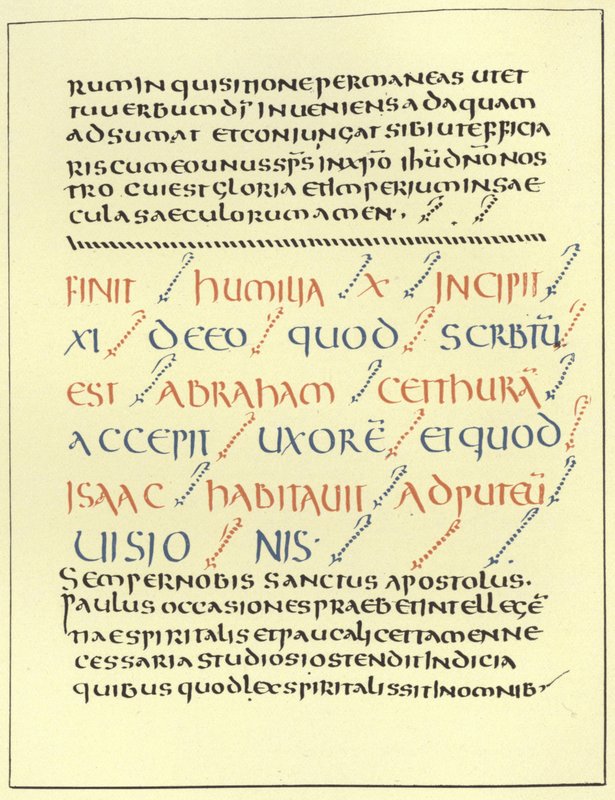 RUM INQUISITIONE PERMANEAS UTET
TU UERBUM DI INUENIENS AD AQUAM
ADSUMAT ET CONIUNGAT SIBI UT EFFICIA
RIS CUM EO UNUS SPS IN XPO IHU DNO NOS
TRO CUI EST GLORIA ET IMPERIUM IN SAE
CULA SAECULORUM AMEN·
FINIT HUMILIA X INCIPIT
XI DE EO QUOD SCRBTŪ
EST ABRAHAM CETTHURĀ
ACCEPIT UXORĒ ET QUOD
ISAAC HABITAUIT AD PUTEŪ
UISIO NIS·
SEMPER NOBIS SANCTUS APOSTOLUS·
PAULUS OCCASIONES PRAEBET INTELLEGĒ
TIAE SPIRITALIS ET PAUCA LICET TAMEN NE
CESSARIA STUDIOSIS OSTENDIT INDICIA
QUIBUS QUOD LEX SPIRITALIS SIT IN OMNIB·